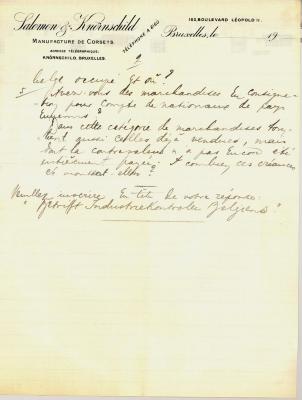 Salomon & Knörnschild
Manufacture de Corsets
ADRESSE TÉLÉGRAPHIQUE:
KNÖRNSCHILD, BRUXELLES.
TÉLÉPHONE A 6160
160, BOULEVARD LÉOPOLD II.
Bruxelles, le 19
2
belge occupé et où ?
5 Avez vous des marchandises en consigna-
tion pour compte de nationaux de pays
ennemis ?
Dans cette catégorie de marchandises tom-
bent aussi celles déjà vendues, mais
dont la contrevaleur n'a pas encore été
entièrement payée. A combien ces créances
se montent-elles ?
Veuillez inscrire en tête de votre réponse:
"Betrifft Industriekontrolle Belgiens".